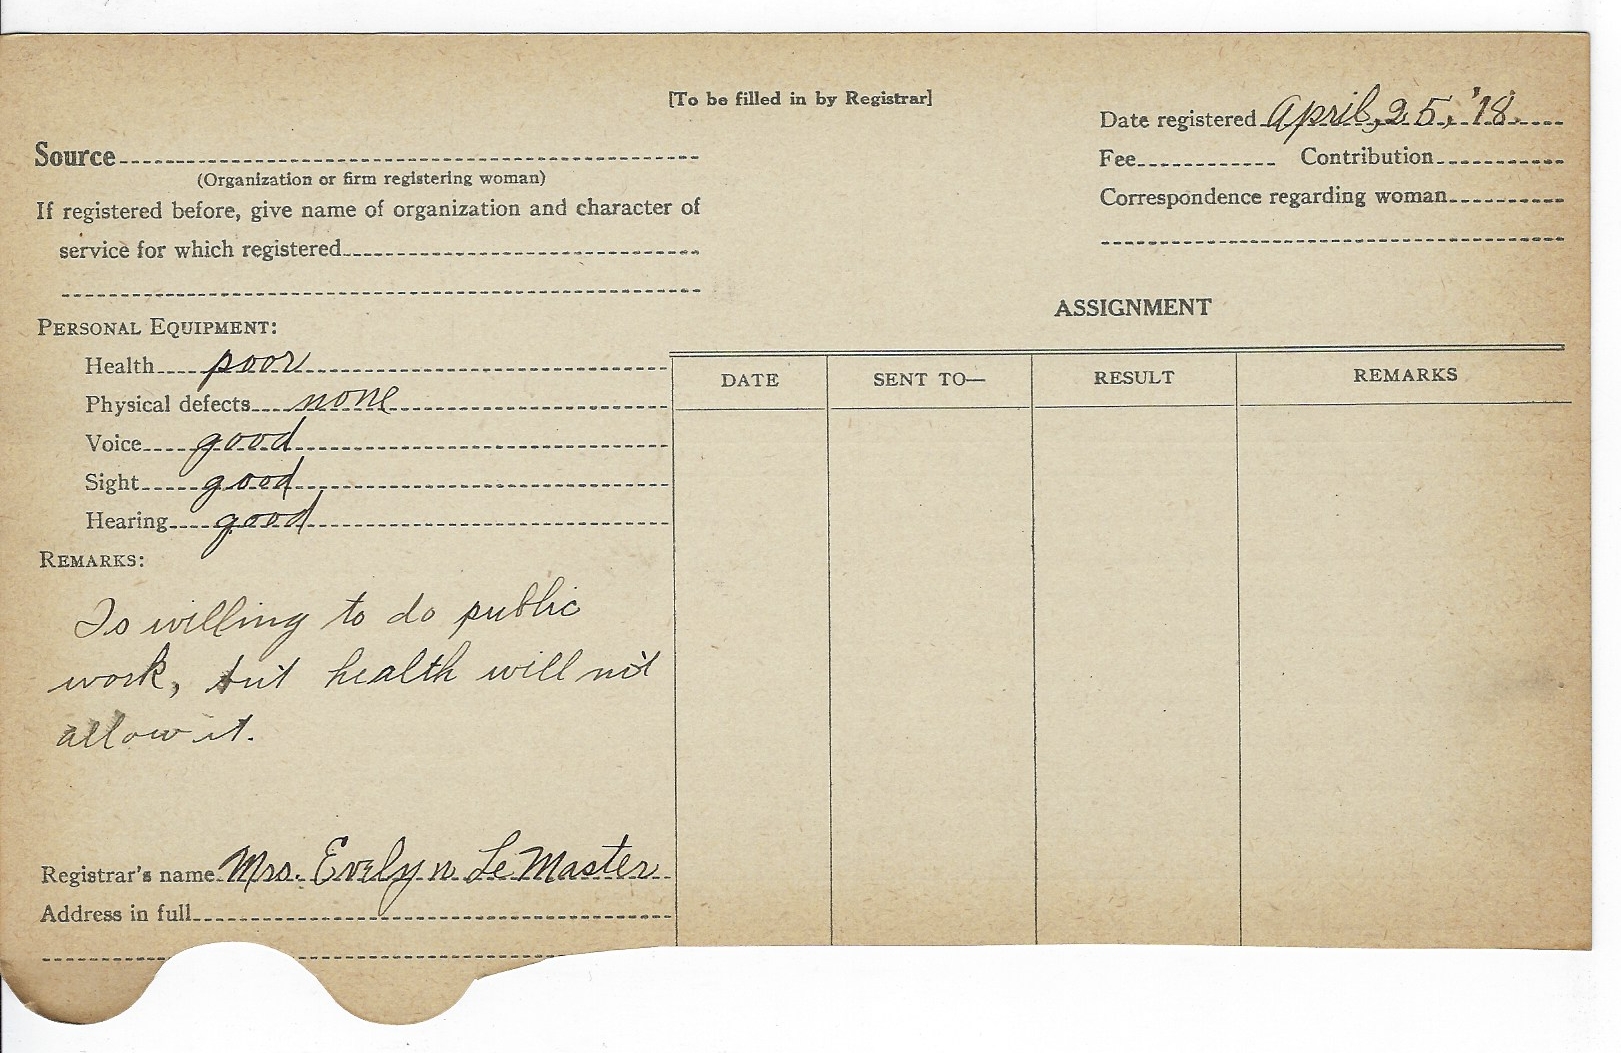 [To be filled in by Registrar]
Date registered April, 25, '18.
Source
Fee Contribution
(Organization or firm registering woman)
Correspondence regarding woman
If registered before, give name of organization and character of
service for which registered
ASSIGNMENT
PERSONAL EQUIPMENT:
Health poor
Physical defects none
Voice good
Sight good
Hearing good
DATE SENT TO— RESULT REMARKS
REMARKS:
Is willing to do public
work, but health will not
allow it.
Registrar's name Mrs. Evelyn LeMaster
Address in full